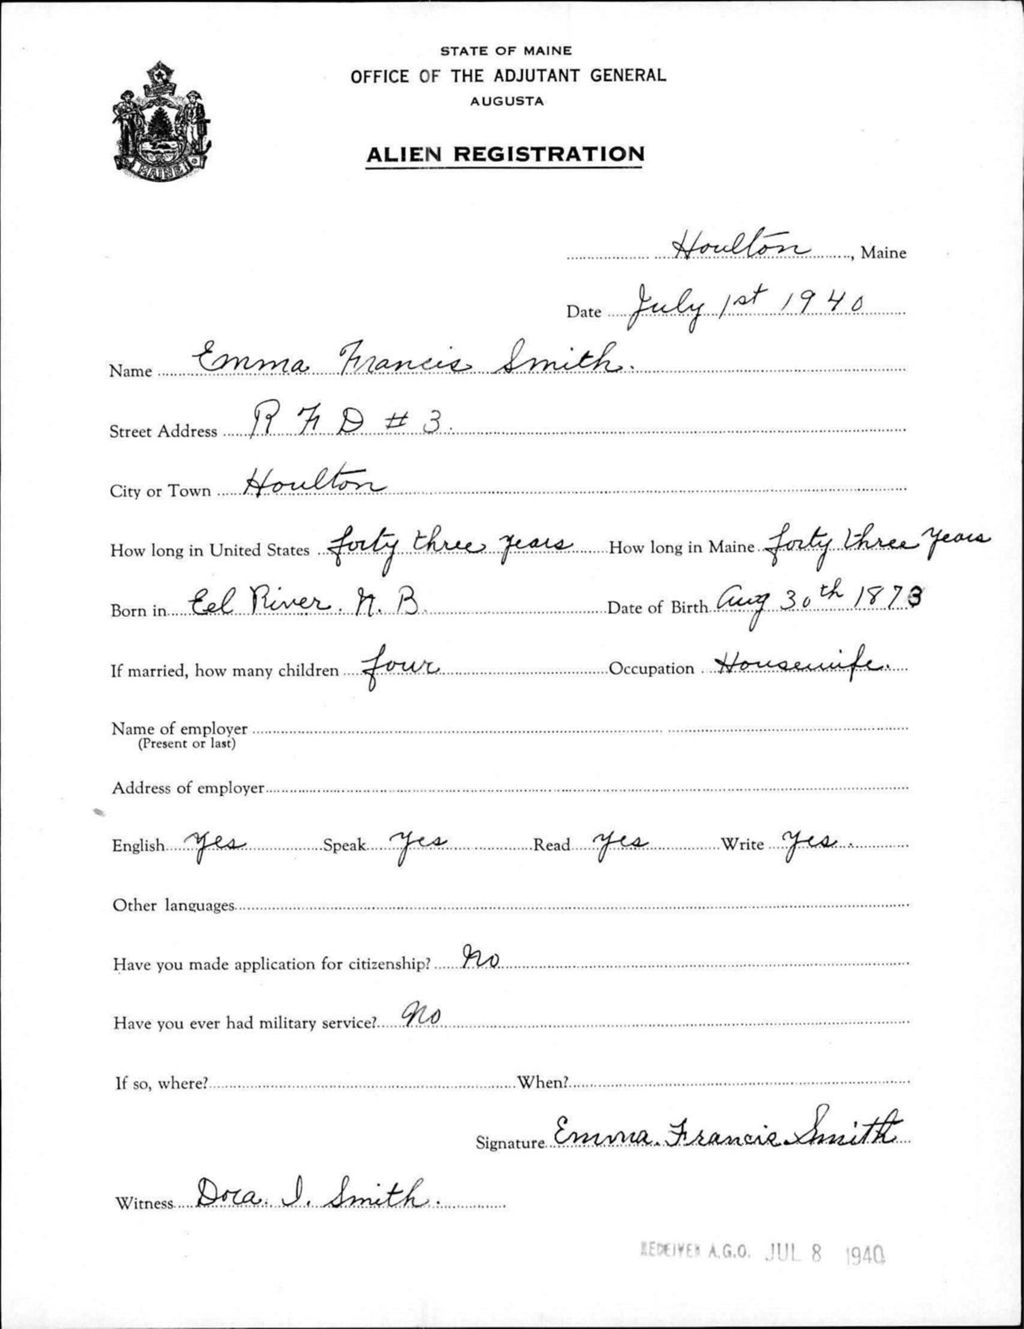 STATE OF MAINE
OFFICE OF THE ADJUTANT GENERAL
AUGUSTA
ALIEN REGISTRATION
MAINE
Houlton, Maine
Date July 1st 1940
Name Emma Francis Smith.
Street Address R F D # 3.
City or Town Houlton
How long in United States forty three years How long in Maine forty three years
Born in Eel River. N. B. Date of Birth Aug 30th 1873
If married, how many children four Occupation Housewife.
Name of employer
(Present or last)
Address of employer
English Yes Speak Yes Read Yes Write Yes.
Other languages
Have you made application for citizenship? No
Have you ever had military service? No
If so, where? When?
Signature Emma. Francis Smith
Witness Dora. I. Smith.
RECEIVED A.G.O. JUL 8 1940